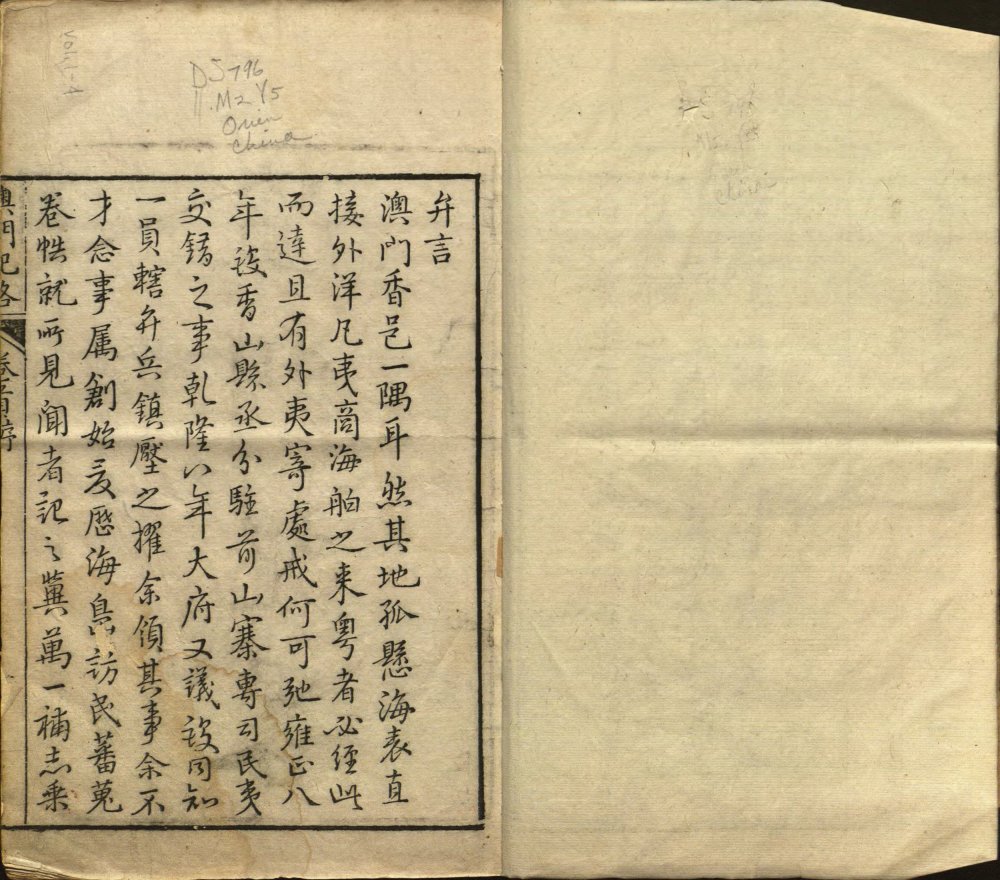 Vol. 1-4
DS796
.M2 Y5
Orien
China
弁言
澳門香邑一隅耳然其地孤懸海表直
接外洋凡夷商海舶之来粤者必經此
而達且有外夷寄處戒何可弛雍正八
年設香山縣丞分駐前山寨專司民夷
交錯之事乾隆八年大府又議設同知
一員轄弁兵鎮壓之擢余領其事余不
才念事属創始爰歷海島訪民蕃蒐
卷帙就所見聞者記之冀萬一補志乗
澳門記略 卷首序